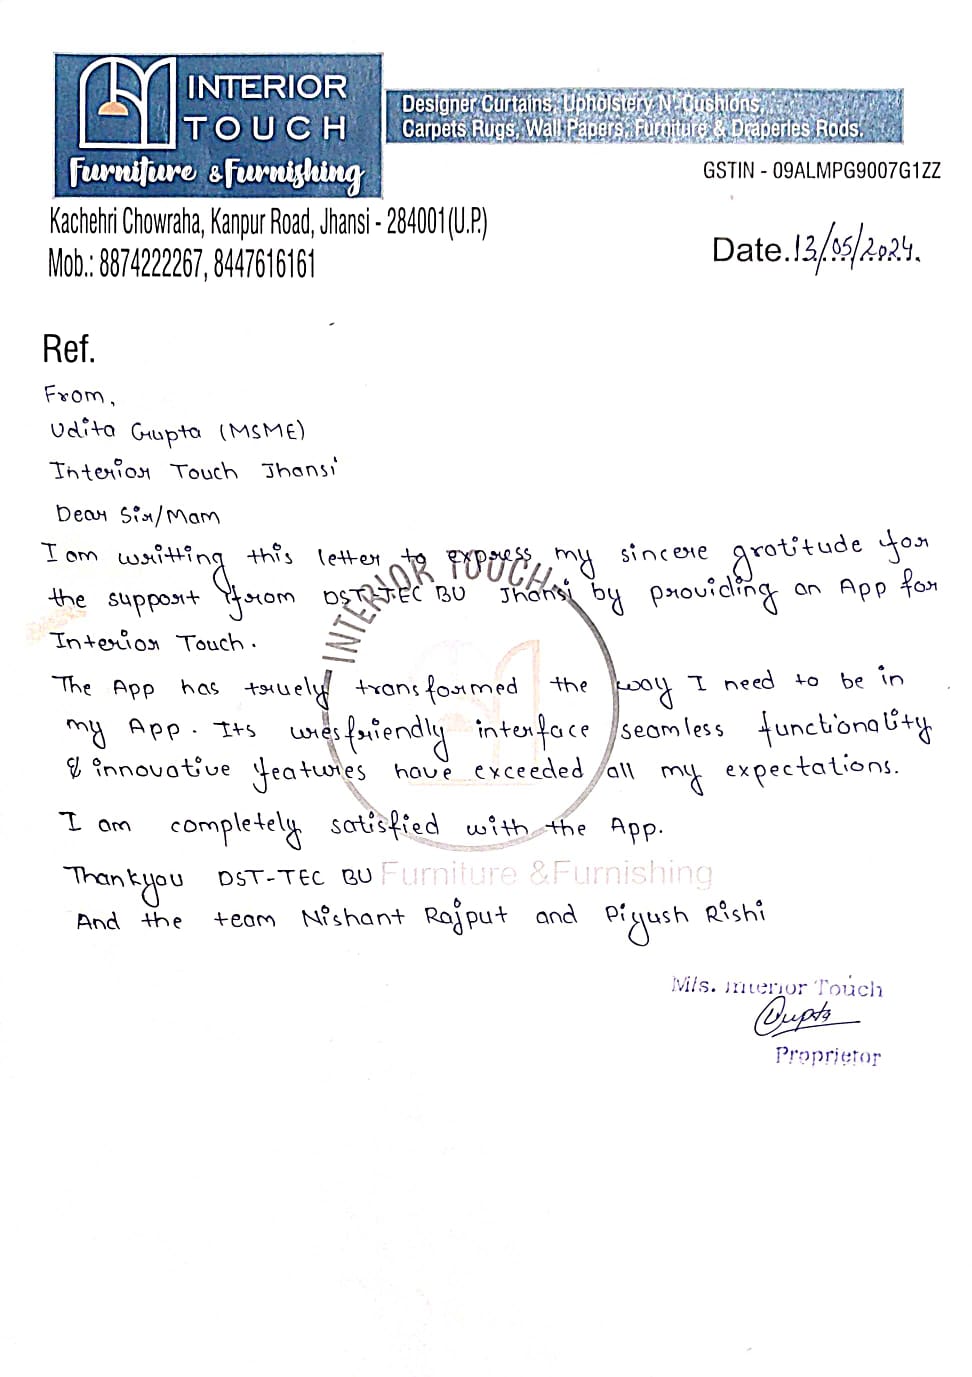 INTERIOR
TOUCH
Furniture & Furnishing
Designer Curtains, Upholstery N. Cushions,
Carpets Rugs, Wall Papers, Furniture & Draperies Rods.
GSTIN - 09ALMPG9007G1ZZ
Kachehri Chowraha, Kanpur Road, Jhansi - 284001(U.P.)
Mob.: 8874222267, 8447616161
Date.13/05/2024.
Ref.
From,
Udita Gupta (MSME)
Interior Touch Jhansi
Dear Sir/Mam
I am writting this letter to express my sincere gratitude for
the support from DST-TEC BU Jhansi by providing an App for
Interior Touch.
The App has truely transformed the way I need to be in
my App. Its friendly interface seamless functionality
& innovative features have exceeded all my expectations.
I am completely satisfied with the App.
Thankyou DST-TEC BU
And the team Nishant Rajput and Piyush Rishi
INTERIOR TOUCH
Furniture & Furnishing
M/s. Interior Touch
Gupta
Proprietor